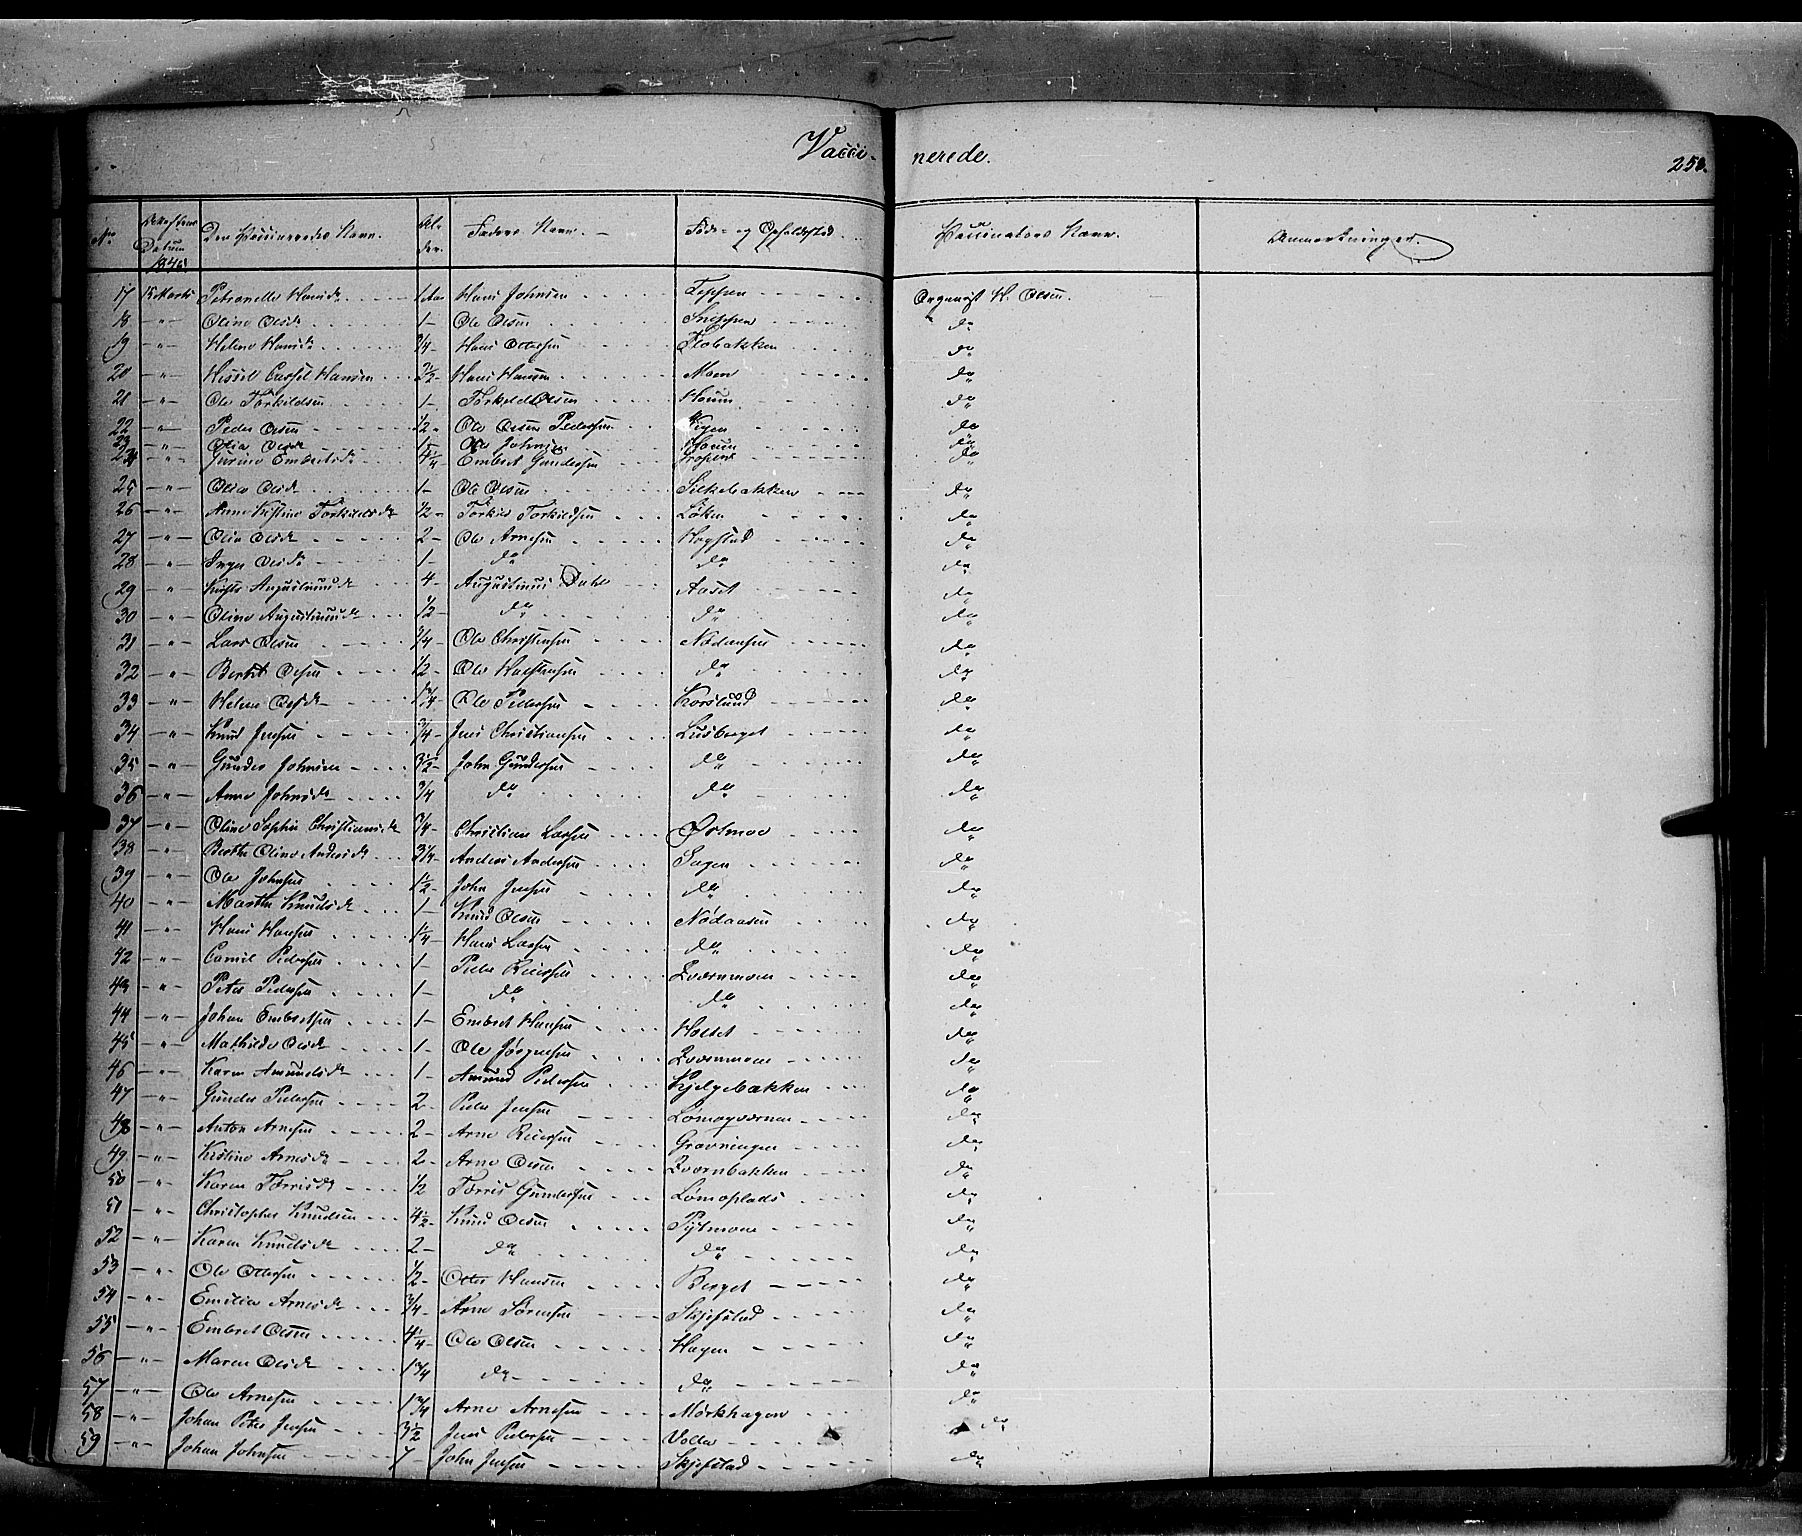 Vacci- nerede. 258.
No Datum 1846 Den Vaccineredes Navn. Al- der. Faders Navn. Føde- og Opholdssted Vaccinators Navn. Anmærkninger.
17 15 Marts Petronelle Hansd. 1 Aar Hans Johnsen Teppen Organist H. Olsen.
18 -"- Oline Olsd. 1- Ole Olsen Snippen do
19 -"- Helene Hansd. 3/4 Hans Ottersen Flobakken do
20 -"- Hansen 2 1/2- Hans Hansen Moen do
21 -"- Ole Torkildsen 1- Torkild Olsen Houm do
22 -"- Peder Olsen 1/2- Ole Olsen Pedersen Vigen do
23 -"- Olia Olsd. 1- Ole Johnsen Houm do
24 -"- Gurine Embretsd. 4 1/4 Embret Gundersen do
25 -"- Olia Olsd. 1- Ole Olsen Silkebakken do
26 -"- Anne Kristine Torkildsd. 1/2- Torkild Torkildsen Løken do
27 -"- Olia Olsd. 2- Ole Arnesen Hogstad do
28 -"- Inger Olsd. 1- do do do
29 -"- Augustinusd. 4- Augustinus Aaset do
30 -"- Oline Augustinusd. 1/2- do do do
31 -"- Lars Olsen 3/4 Ole Christensen Nødaasen do
32 -"- Berthe Olsen 1/2- Ole Halstensen do do
33 -"- Helene Olsd. 1 3/4- Ole Pedersen Korslund do
34 -"- Knud Jensen 3/4- Jens Christiansen Lusberget do
35 -"- Gunder Johnsen 3 1/2- John Gundersen do do
36 -"- Anne Johnsd. 3/4 do do do
37 -"- Oline Sophie Christiansd. 3/4- Christian Larsen Østmoe do
38 -"- Berthe Oline Andersd. 3/4- Anders Andersen Sagen do
39 -"- Ole Johnsen 1 1/2- John Jensen do do
40 -"- Marthe Knudsd. 1- Knud Olsen Nødaasen do
41 -"- Hans Hansen 1 1/4- Hans Larsen do do
42 -"- Camil Pedersen 1- Peder Reiersen Kvernmoen do
43 -"- Peter Pedersen 1- do do do
44 -"- Johan Embretsen 1- Embret Hansen Holtet do
45 -"- Mathilde Olsd. 1- Ole Jørgensen Kvernmoen do
46 -"- Karen Amundsd. 1- Amund Pedersen Kjelgebakken do
47 -"- Gunder Pedersen 2- Peder Jensen Lømogværnen do
48 -"- Anton Arnesen 2- Arne Reiersen Gravningen do
49 -"- Kristine Arnesd. 2- Arne Olsen Kvernbakken do
50 -"- Karen Torrisd. 1/2 Torris Gundersen Lømoplads do
51 -"- Christopher Knudsen 4 1/2- Knud Olsen Pytmoen do
52 -"- Karen Knudsd. 2- do do do
53 -"- Ole Ottersen 1/2- Otter Hansen Berget do
54 -"- Emilia Arnesd. 3/4 Arne Sørensen Skjefstad do
55 -"- Embret Olsen 4 1/4- Ole Olsen Hagen do
56 -"- Maren Olsd. 1 3/4 do do do
57 -"- Ole Arnesen 1 3/4 Arne Arnesen Mørkhagen do
58 -"- Johan Peter Jensen 3 1/2 Jens Pedersen Volla do
59 -"- Johan Johnsen 7- John Jensen Skjefstad do